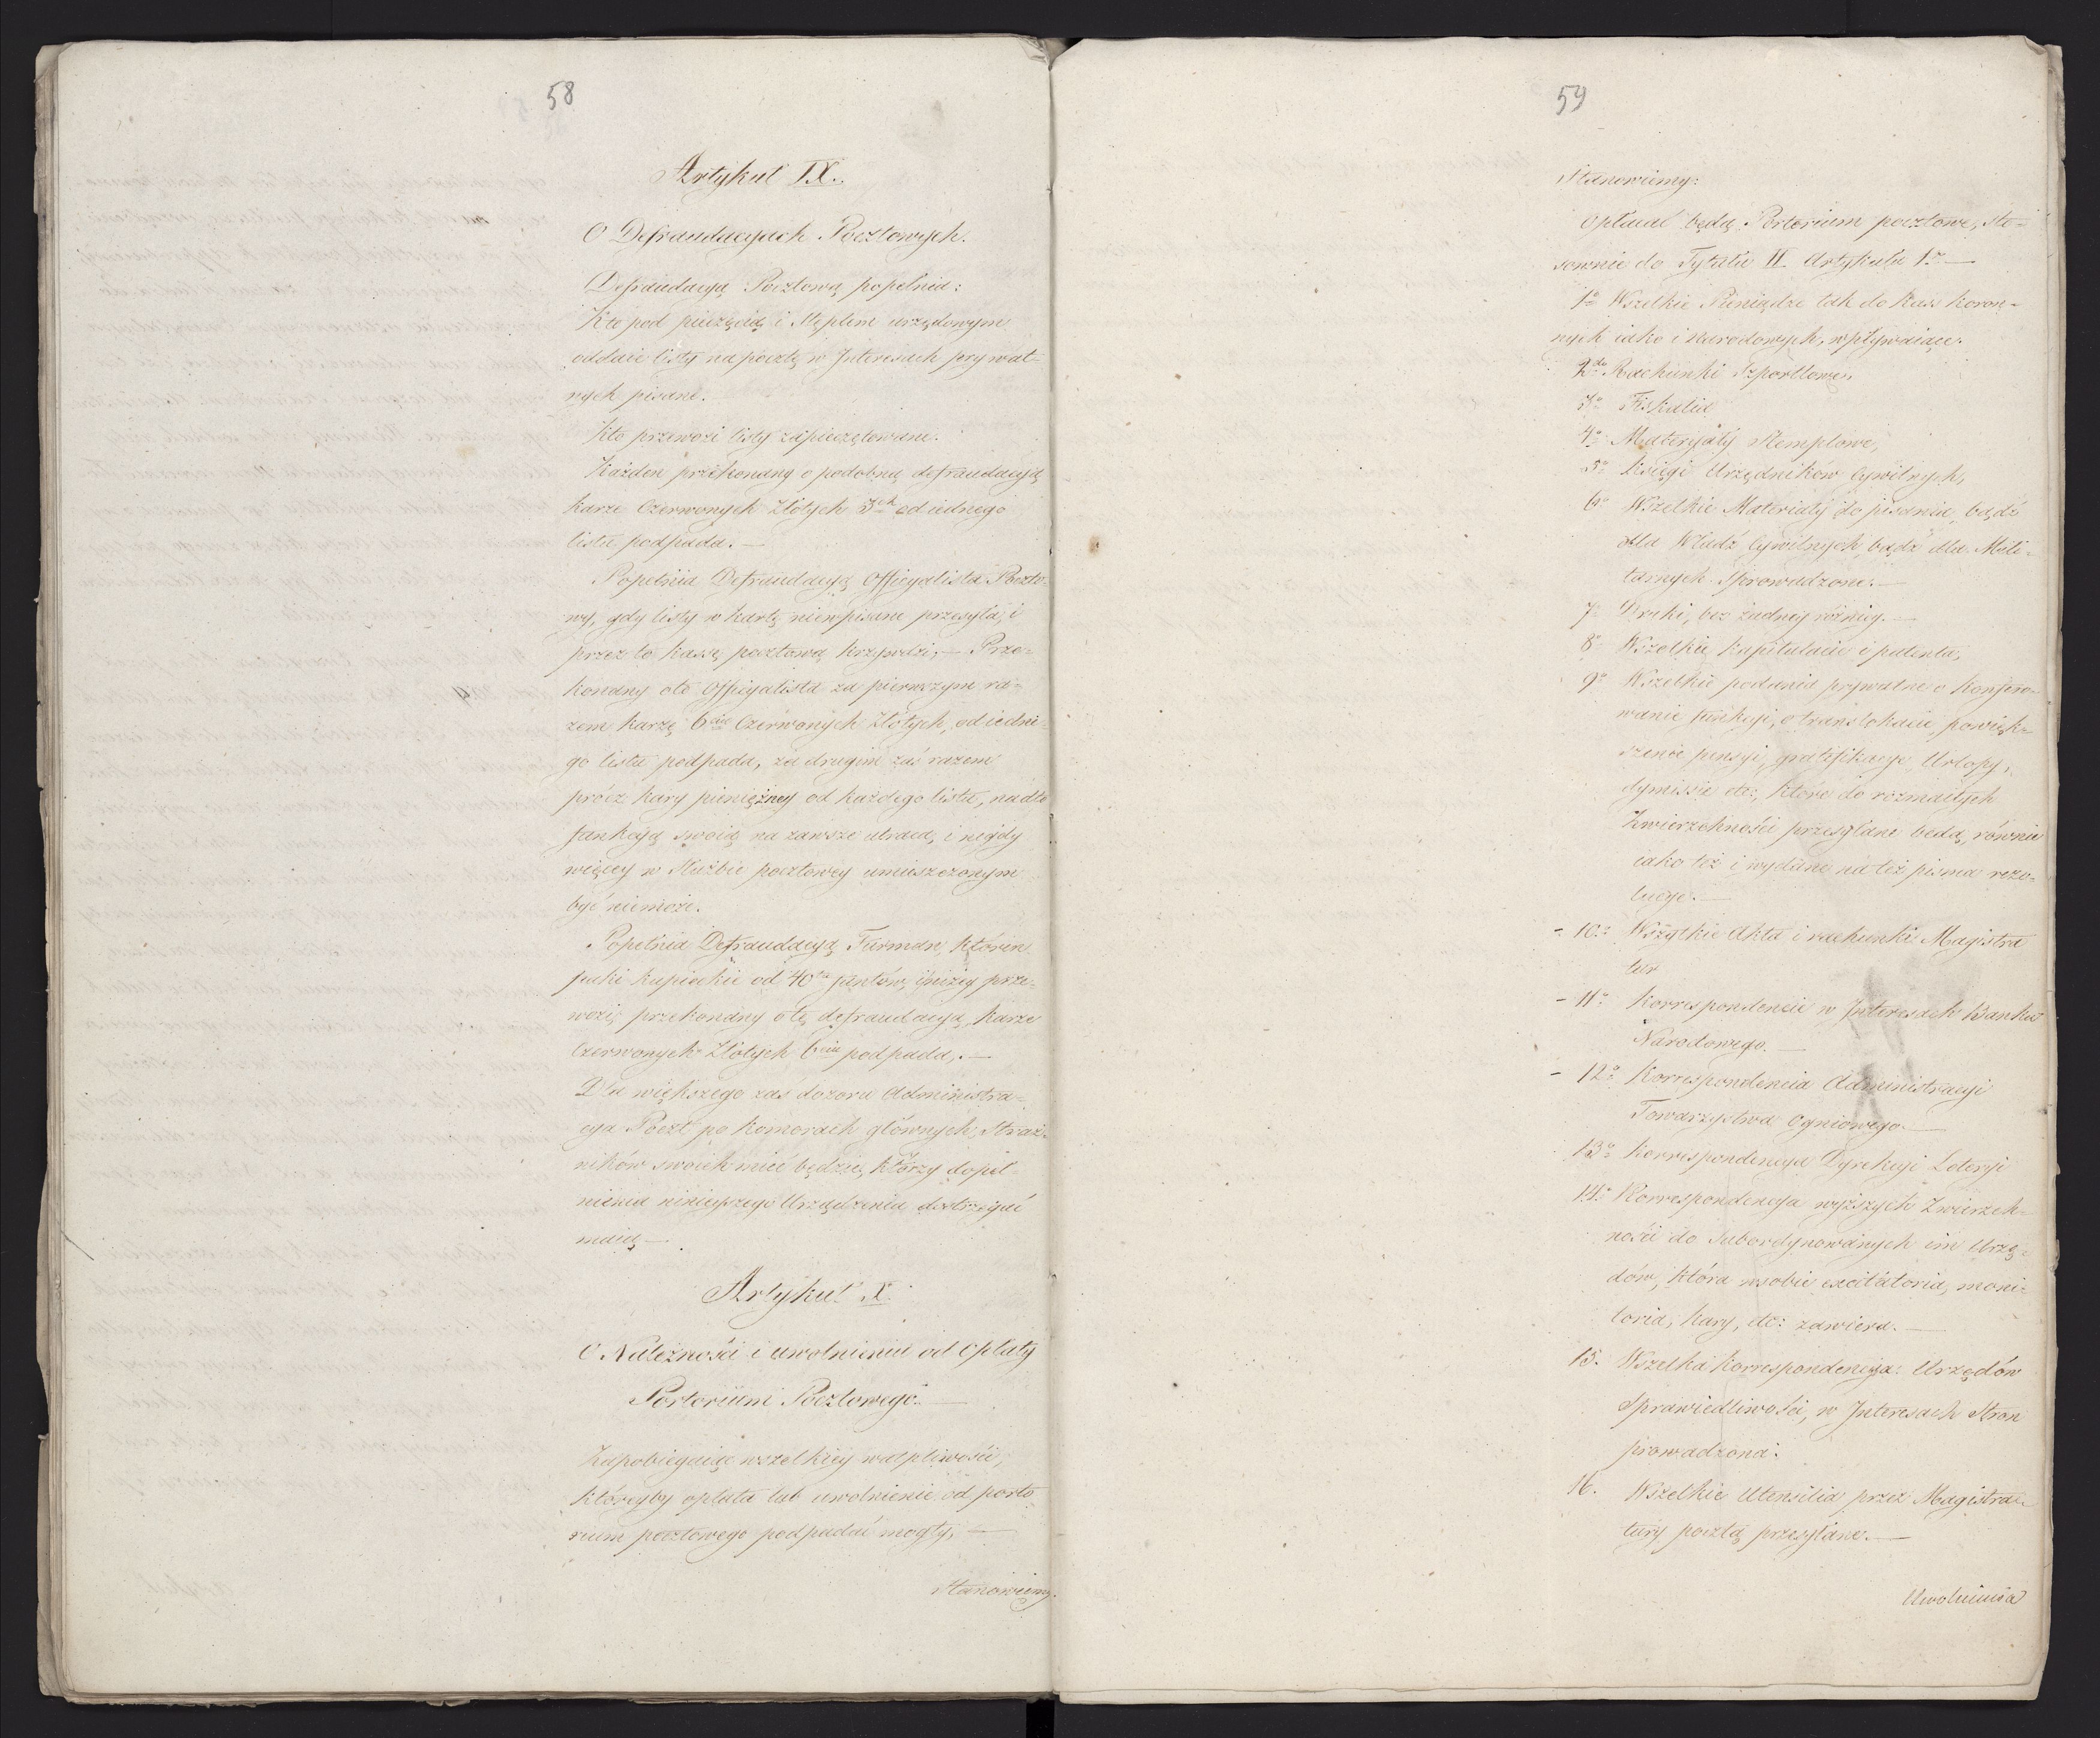 58
Artykuł IX.
O Defraudacyach Pocztowych.
Defraudacyą Pocztową popełnia:
Kto pod pieczęcią i Stęplem urzędowym
oddaie listy na pocztę w Interesach prywat=
nych pisane.
Kto przewozi listy zapieczętowane.
Każden przekonany o podobną defraudacyą
karze Czerwonych Złotych 3ch od iednego
listu podpada. —
Popełnia Defraudacyą Officyalista Poczto=
wy, gdy listy w kartę niewpisane przesyła, i
przez to kassę pocztową krzywdzi, — Prze=
konany oto Officyalista za pierwszym ra=
zem karzę 6ciu Czerwonych Złotych, od iedne=
go listu podpada, za drugim zaś razem
prócz kary pieniężney od każdego listu, nadto
funkcyą swoią na zawsze utraca, i nigdy
więcey w Służbie pocztowey umieszczonym
być niemoże.
Popełnia Defraudacyą Furman, któren
paki kupieckie od 40tu funtów, i niżey prze=
wozi, przekonany o tę defraudacyą, karze
Czerwonych Złotych 6ciu podpada, . —
Dla większego zaś dozoru Administra=
cya Poczt po komorach głównych, Straż=
ników swoich mieć będzie, którzy dopeł=
nienia ninieyszego Urządzenia dostrzegać
maią —
Artykuł X.
O Należności i uwolnieniu od opłaty
Portorium Pocztowego. —
Zapobiegaiąc wszelkiey wątpliwości,
któreyby opłata lub uwolnienie od porto=
rium pocztowego podpadać mogły, —
Stanowiemy.
59
Stanowiemy:
Opłacać będą Portorium pocztowe, sto=
sownie do Tytułu II Artykułu 1o —
1o Wszelkie Pieniądze tak do Kass koron=
nych iako i Narodowych, wpływaiące.
2do Rachunki Szportlowe,
3o Fiskalia
4o Materyały Stemplowe,
5o Księgi Urzędników Cywilnych,
6o Wszelkie Materiały do pisania, bądź
dla Władz Cywilnych, bądź dla Mili=
tarnych Sprowadzone. —
7o Druki, bez żadney różnicy. —
8o Wszelkie kapitulacie i patenta,
9o Wszelkie podania prywatne o konfero=
wanie funkcyi, o translokacie, powięk=
szenie pensyi, gratyfikacye, Urlopy,
dymissie etc:, które do rozmaitych
Zwierzchności przesyłane będą, równie
iako też i wydane na też pisma rezo=
lucye. —
- 10o Wszystkie Akta i rachunki Magistra
tur
- 11o Korrespondencie w Interesach Banku
Narodowego. —
- 12o Korrespondencia Administracyi
Towarzystwa Ogniowego. —
13o Korrespondencya Dyrekcyi Loteryi
14o Korrespondencya wyższych Zwierzch=
ności do Subordynowanych im Urzę=
dów, która w sobie excitatoria, moni=
toria, kary, etc: zawiera. —
15. Wszelka korrespondencya Urzędów
Sprawiedliwości, w Interesach Stron
prowadzona.
16. Wszelkie Utensilia przez Magistra=
tury pocztą przesyłane. —
Uwolnienia